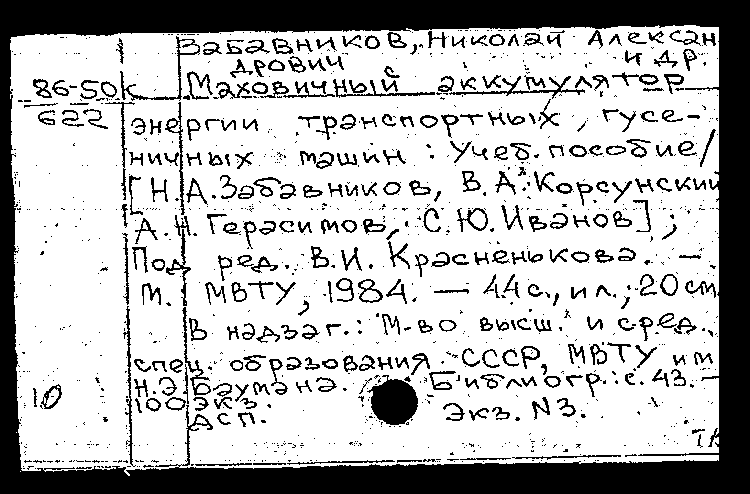 Забавников, Николай Алексан
дрович и др.
86-50к Маховичный аккумулятор
622 энергии транспортных, гусе-
ничных машин : Учеб. пособие/
[Н.А.Забавников, В.А.Корсунский
А.Н.Герасимов, С.Ю.Иванов] ;
Под ред. В.И. Красненькова. —
М. : МВТУ, 1984. — 44с., ил.; 20см.
В надзаг.: М-во высш. и сред.
спец. образования СССР, МВТУ им
Н.Э.Баумана. Библиогр.: с. 43. —
10 100 экз. Экз. N3.
ДСП.